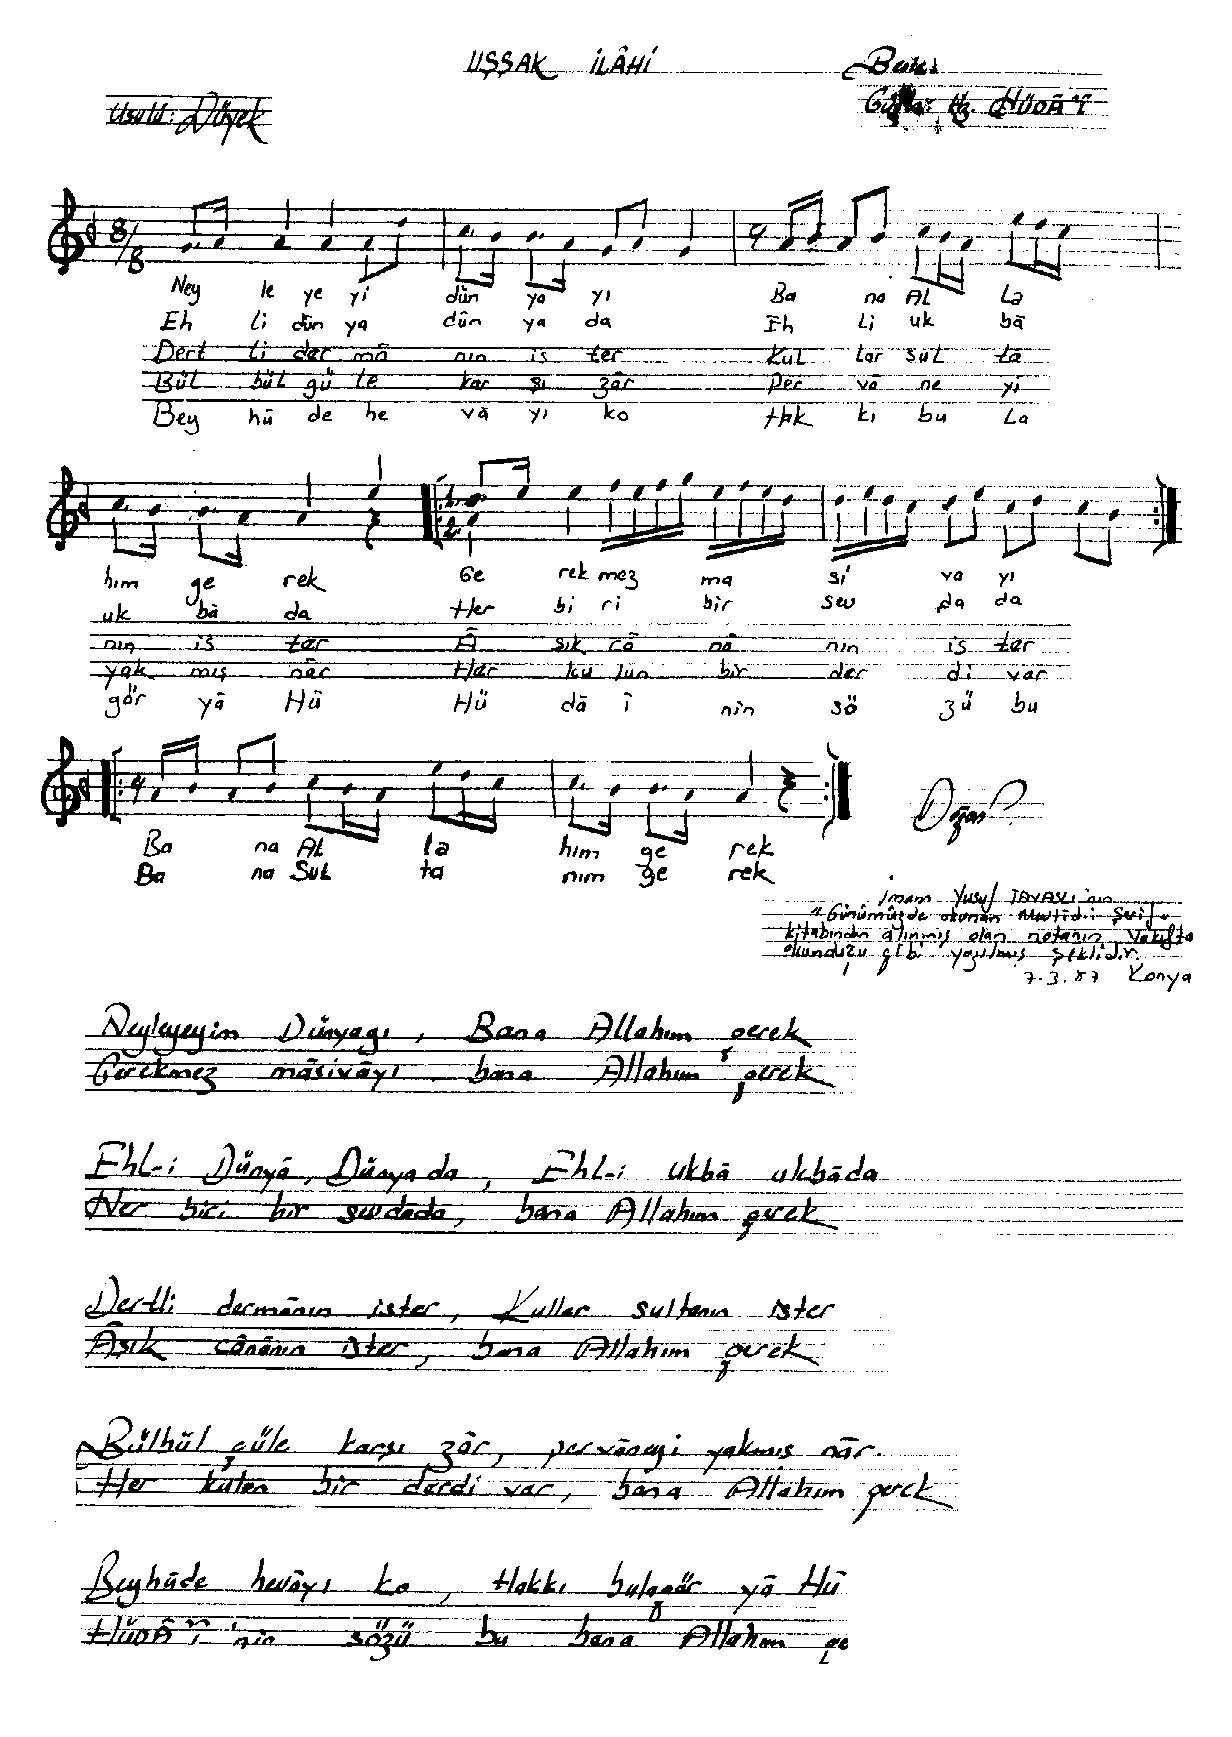 UŞŞAK İLÂHİ
Usulü: Düyek
Hz. HÜDÂ'Î
8/8
Ney le ye yi dün ya yı Ba na AL La
Eh li dün ya dün ya da Eh Li uk bā
Dert li der mā nın is ter Kul lar sul tā
Bül bül gü le kar şı zâr Per vā ne yi
Bey hū de he vā yı ko Hak kı bu La
hım ge rek Ge rek mez ma si va yı
uk bā da Her bi ri bir sev da da
nın is ter Â şık cā nā nın is ter
yak mış nār Her ku lun bir der di var
gör yā Hū Hü dā î nin sö zü bu
Ba na AL la hım ge rek
Ba na SuL ta nım ge rek
İmam Yusuf TAVASLI'nın
"Günümüzde okunan Mevlid-i Şerif"
kitabından alınmış olan notanın Vakıfta
okunduğu gibi yazılmış şeklidir.
7.3.87 Konya
Neyleyeyim Dünyayı, Bana Allahım gerek
Gerekmez māsivāyı bana Allahım gerek
Ehl-i Dünyā, Dünyada, Ehl-i ukbā ukbāda
Her biri bir sevdāda, bana Allahım gerek
Dertli dermānın ister, Kullar sultanın ister
Âşık cānānın ister, bana Allahım gerek
Bülbül güle karşı zâr, pervāneyi yakmış nār.
Her kulun bir derdi var, bana Allahım gerek
Beyhūde hevāyı ko, Hakkı bulagör yā Hū
HÜDÂ'Î'nin sözü bu bana Allahım ge